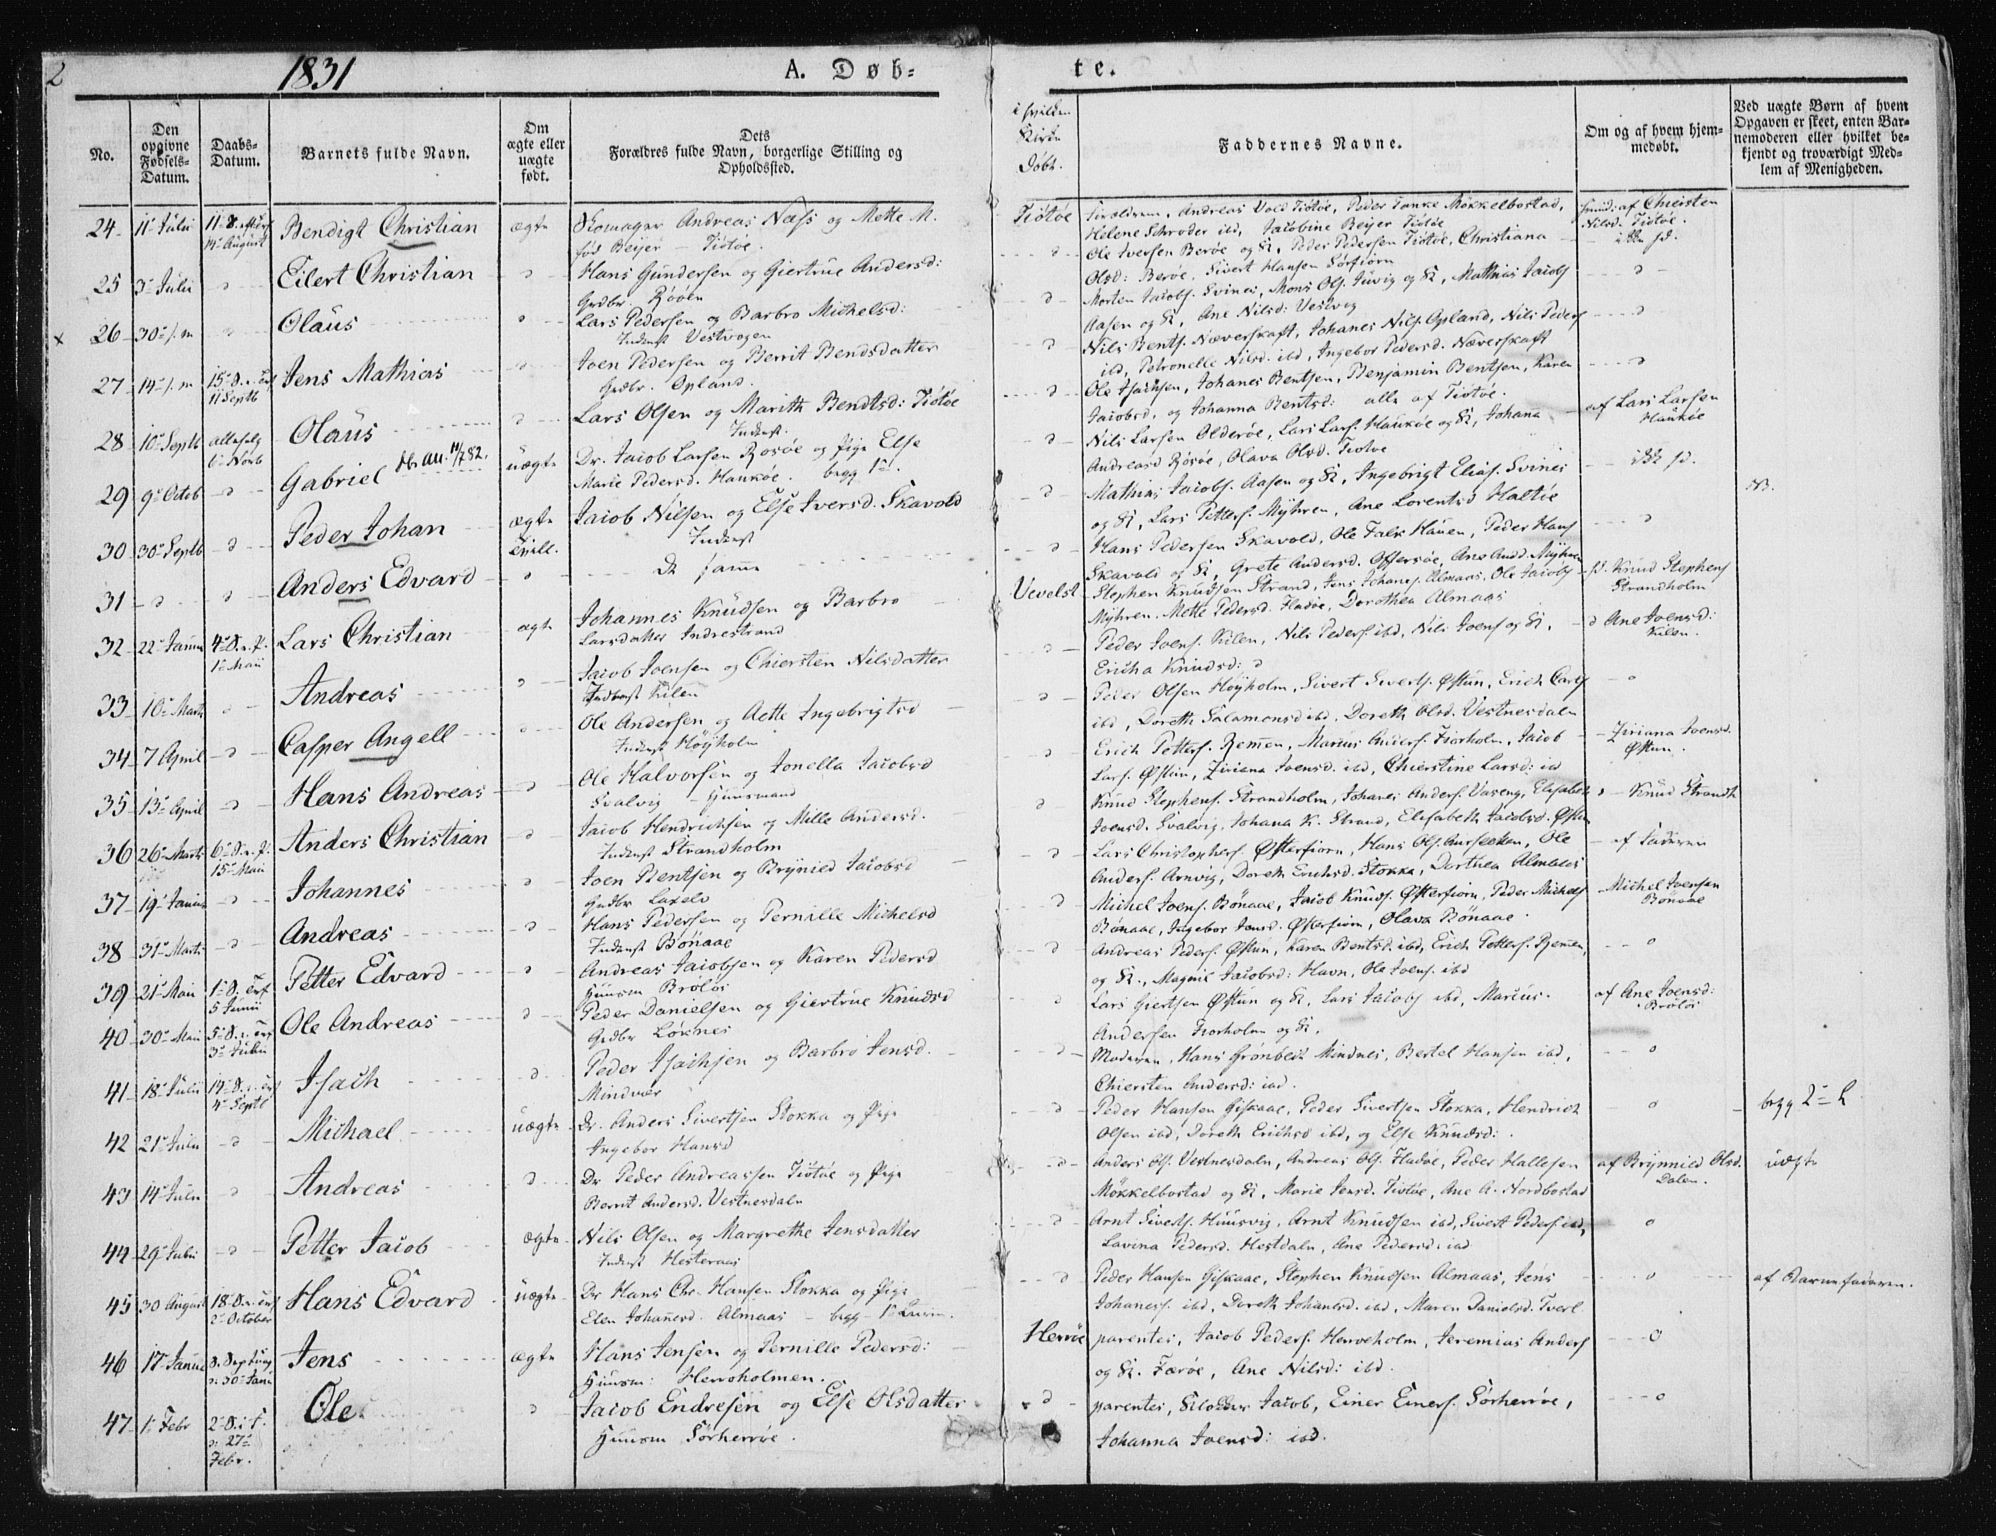 2
1831
A. Døb-
te.
No.
Den opgivne Fødsels-Datum.
Daabs-Datum.
Barnets fulde Navn.
Om ægte eller uægte født.
Dets Forældres fulde Navn, borgerlige Stilling og Opholdssted.
i hvilken Kirke Døbt.
Faddernes Navne.
Om og af hvem hjem-medøbt.
Ved uægte Børn af hvem Opgaven er skeet, enten Bar-nemoderen eller hvilket be-kjendt og troværdigt Med-lem af Menigheden.
24 11 Julii Bendigt Christian ægte Skomager Andreas Næss og Mette M.
fød Beijer - Tiøtøe.
Tiøtøe Forældrene, Andreas Vold Tiøtøe, Peder Tanke Møkkelbostad,
Helene Schrøder ibd, Jacobine Beijer Tiøtøe
af Christen Nilsd. Tiøtøe.
25 3 Julii Eilert Christian Hans Gundersen og Giertrue Andersd:
Ole Iversen Berøe og K, Peder Pedersen Tiøtøe, Christiana
Olsd: Berøe, Sivert Hansen Sørfiorn
x 26 30 Olaus Lars Pedersen og Barbro Michelsd:
Inderst Vestvogen
Morten Jacobs. Svines, Mons Ols. og K, Mathias Jacobs
Aasen og K, Ane Nilsd: Vestvog
27 14 15 11 Septb Jens Mathias Joen Pedersen og Berrit Bendsdatter
Grdbr. Opland.
Nils Bents. Næverskaft, Johanes Nils. Opland, Nils Peders
ibd, Petronelle Nilsd. ibd, Ingebor Pedersd. Næverskaft
28 10 Septb 6 Novb Olaus Lars Olsen og Marith Bendtsd: Tiøtøe
Inderst.
Ole Isachsen, Johanes Bentsen, Benjamin Bentsen, Karen
Jacobsd. og Johanna Bentsd: alle af Tiøtøe.
af Lars Larsen Haukøe
29 9 Octob Gabriel uægte Dr. Jacob Larsen Rosøe og Pige Else
Marie Pedersd. Haukøe. begg 1
Nils Larsen Olderøe, Lars Lars. Haukøe og K, Johana
Andreasd Rosøe, Olava Olsd. Tiøtøe
NB.
30 30 Septb Peder Johan ægte Tvill. Jacob Nilsen og Else Iversd. Skavold
Inderst
Mathias Jacobs. Aasen og K, Ingebrigt Elias. Svines
og K, Lars Petters. Myhren, Ane Lorentsd Haltøe
31 Anders Edvard De samme
Hans Pedersen Skavold, Ole Falk Hauen, Peder Hans
Skavold og K, Grete Andersd. Offersøe, Ane Andd. Myhren
32 22 Janu 4 1 Maii Lars Christian ægte Johannes Knudsen og Barbro
Larsdatter Indrestrand
Vevelst Stephen Knudsen Strand, Jens Johanes. Almaas, Ole Jacobs
Myhren. Mette Pedersd. Fladøe, Dorothea Almaas
Knud Stephens Strandholm
33 10 Marts Andreas Jacob Joensen og Chiersten Nilsdatter
Inderst Kilen
Peder Joens. Kilen, Nils Peders ibd, Nils Joens og K,
Ericha Knudsd:
Ane Joensd: Kilen.
34 7 April Casper Angell Ole Andersen og Aette Ingebrigtsd
Inderst Høyholm
Peder Olsen Høyholm, Sivert Siverts. Østun, Erich Carls
ibd, Doreth Salamonsd ibd, Doreth Olsd. Vestnesdalen
35 13 April Hans Andreas Ole Halvorsen og Jonella Jacobsd
Svalvig - Huusmand
Erich Petters. Remen, Marius Anders. Fiorholm, Jacob
Lars. Østun, Ziriana Joensd. ibd, Chierstine Larsd: ibd
Ziriana Joensd. Østun.
36 26 Marts 6 15 Maii Anders Christian Jacob Hendrichsen og Mille Andersd.
Inderst Strandholm
Knud Stephens. Strandholm, Johanes Anders. Vaseng, Elisabeth
Joensd. Svalvig, Johana K. Strand, Elisabeth Jacobsd. Østun
Knud Strandh
37 19 Janua Johannes Joen Bentsen og Brynild Jacobsd
Grdbr
Lars Christophers. Østerfiorn, Hans Ols. Aursletten, Ole
Anders. Arnvig, Doreth Erichsd. Stokka, Dorthea Almaas
af Faderen
38 31 Marts Andreas Hans Pedersen og Pernille Michelsd
Inderst Bønaae
Michel Joens. Bønaae, Jacob Knuds. Østerfiorn, Peder Michels
Bønaae, Ingebor Jonsd. Østerfiorn, Olava Bønaae.
Michel Joensen Bønaae
39 21 Maii 5 Junii Petter Edvard Andreas Jacobsen og Karen Pedersd
Huusm Brøløs
Andreas Peders. Østun, Karen Bentsd. ibd, Erich Petters. Remen,
og K., Magnil Jacobsd: Havn, Ole Joens. ibd
40 30 Maii 3 Julii Ole Andreas Peder Danielsen og Giertrue Knudsd
Grdbr Løknes
Lars Giertsen Østun og K, Lars Jacobs ibd, Marius
Andersen Fiorholm og K.
af Ane Joensd: Brøløs
41 18 Julii 14 4 Septb Isach Peder Isachsen og Barbro Jensd.
Mindnæs
Moderen, Hans Grønbech Mindnes, Bertel Hansen ibd,
Chiersten Andersd: ibd.
42 21 Julii Michael uægte Dr. Anders Sivertsen Stokka og Pige
Ingebor Hansd
Peder Hansen Giskaae, Peder Sivertsen Stokka, Hendrich
Olsen ibd, Doreth Erichsd ibd, og Else Knudsd:.
begg 2 L
43 14 Julii Andreas Dr Peder Andreassen Tiøtøe og Pige
Berrit Andersd. Vestnesdaln
Anders Ols. Vestnesdaln, Andreas Ols. Fladøe, Peder Hallesen
Møkkelbostad og K, Marie Jensd. Tiøtøe, Ane A. Nordbostad
af Brynnild Olsd. Dalen.
uægte
44 29 Julii Petter Jacob ægte Nils Olsen og Margrethe Jensdatter
Inderst Hesteraas
Arnt Siverts. Huusvig, Arnt Knudsen ibd, Sivert Peders ibd,
Lavina Pedersd. Hestdaln, Ane Pedersd: ibd
45 30 August 18 2 October Hans Edvard uægte Dr Hans Chr. Hansen Stokka og Pige
Elen Johanesd. Almaas - begg 1
Peder Hansen Giskaae, Stephen Knudsen Almaas, Jens
Johanes. ibd, Doreth Johansd. ibd, Maren Danielsd. Tverl
af Barnefaderen.
46 17 Janua 30 Janu Jens ægte Hans Jensen og Pernille Pedersd:
Huusm: Herroholmen.
Herrøe parentes, Jacob Peders. Herroeholm, Jeremias Anders
og K. Færøe, Ane Nilsd: ibd.
47 1 Febr 27 Febr. Ole Jacob Endresen og Else Olsdatter
Huusm Sørherrøe.
parentes, Jacob, Einer Einers. Sørherrøe,
Johanna Joensd: ibd.